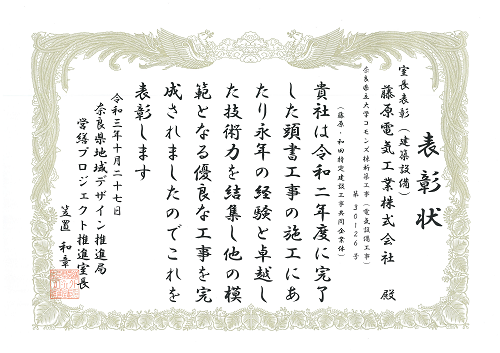 表彰状
室長表彰(建築設備)
藤原電気工業株式会社 殿
第30126号
奈良県立大学コモンズ棟新築工事(電気設備工事)
(藤原・和田特定建設工事共同企業体)
貴社は令和二年度に完了
した頭書工事の施工にあ
たり永年の経験と卓越し
た技術力を結集し他の模
範となる優良な工事を完
成されましたのでこれを
表彰します
令和三年十月二十七日
奈良県地域デザイン推進局
営繕プロジェクト推進室長
笠置 和章